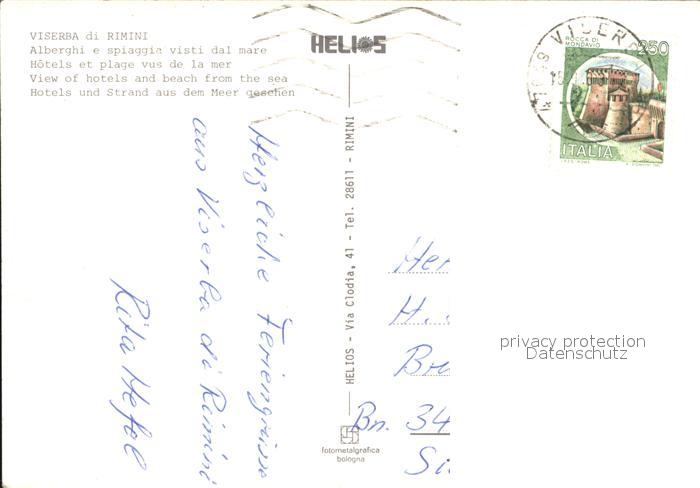 VISERBA di RIMINI
Alberghi e spiaggia visti dal mare
Hôtels et plage vus de la mer
View of hotels and beach from the sea
Hotels und Strand aus dem Meer gesehen
HELIOS
HELIOS - Via Clodia, 41 - Tel. 28611 - RIMINI
fotometalgrafica
bologna
Herzliche Feriengrüsse
aus Viserba di Rimini
Rita Hefel
VISER
ROCCA DI
MONDAVIO
250
ITALIA
Her
H.
Bre
Bn. 34
Si
privacy protection
Datenschutz